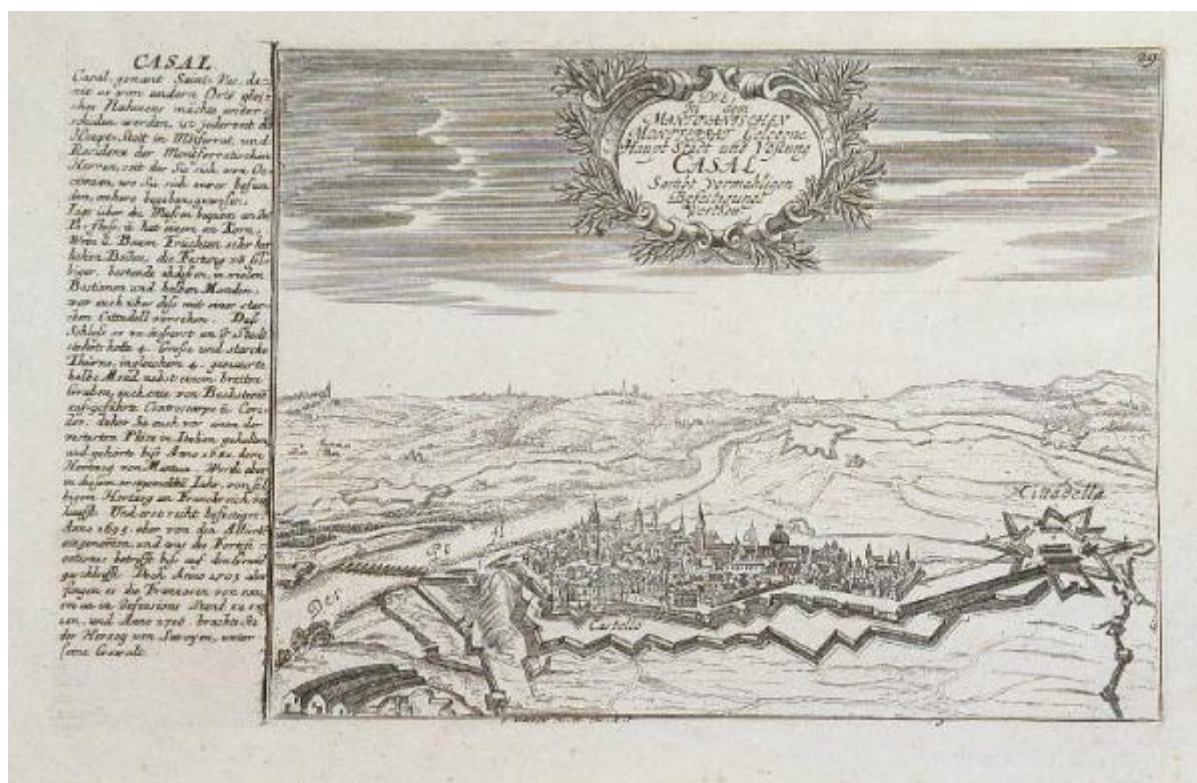 CASAL
Casal, genant Saint Vas, da-
mit es vom andern Orts glei-
ches Nahmens möchte unter-
schieden werden, ist jederzeit die
Haupt-Statt in Monferrat, und
Residenz der Montferratischen
Herren, seit der Sie sich von Oc-
cimian, wo Sie sich zuvor befun-
den, anhero begeben, gewesen.
Ligt über die Massen bequem an dem
Po-fluss, u. hat einen an Korn,
Wein u. Baum Früchten sehr
Boden, die Festung
bestunde in vielen
Bastionen und halben Monden,
war auch über diss mit einer star-
cken Cittadell versehen. Das
Schloss so zu äusserst an der Stadt
hatte 4. Grosse und starcke
Thürne, ingleichen 4.
halbe Mond nebst einem breiten
Graben, auch eine von Backstein
auf-geführte Contrescarpe u.
daher Sie auch vor einen der
vestesten Plätze in Italien gehalten
und gehörte biss Anno 1681. dem
Hertzog von Mantua. Wurde aber
in diesem Jahr, von sel-
bigem Hertzog an Franckreich ver-
kaufft. Und erst recht befestiget,
Anno 1695. aber von den Alliirten
eingenommen, und was die Fortifi-
cationes betrifft biss auf den Grund
geschleifft. Doch Anno 1703 aber
fingen es die Franzosen von neu-
em an in Defensions Stand zu se-
zen, und Anno 1706 brachte Sie
der Herzog von Savoyen, unter
seine Gewalt.
29
DIE
In dem
MANTUANISCHEN
MONTFERRAT Gelegene
Haupt Stadt und Vestung
CASAL,
Sambt vormahligen
Befestigungs
Wercken
Cittadella
Der Po fl
Castello